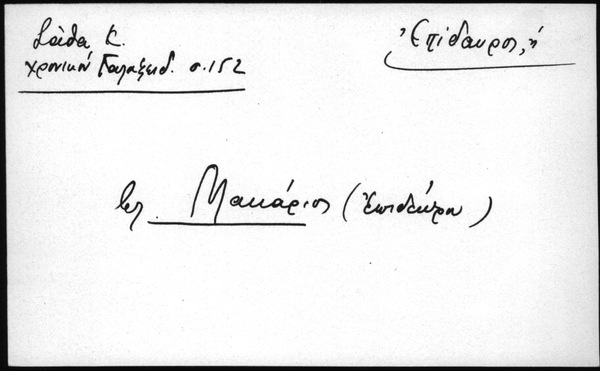 Σάθα Κ.
χρονικόν Γαλαξειδ. σ. 152
Ἐπίδαυρος, ἡ
βλ. Μακάριος (Ἐπιδαύρου)